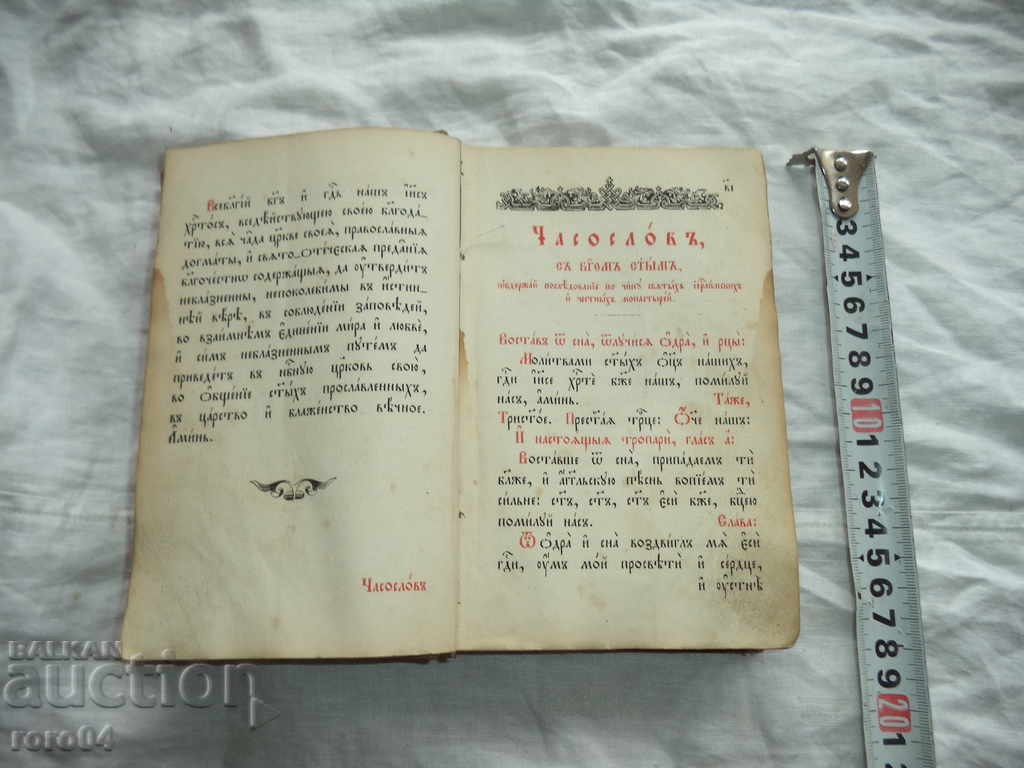 Всебл҃гі́й бг҃ъ и҆ гдⷭ҇ь на́шъ і҆и҃съ
хрⷭ҇то́съ, вседѣ́йствующею свое́ю благода́-
тїю, всѧ̑ ча̑да цр҃кве своеѧ̀, правосла̑вныѧ
догма́ты, и҆ свѧ́то-ѻ҆те́ческаѧ преда̑нїѧ
благоче́стнѡ содержа́щыѧ, да ᲂу҆тверди́тъ
неблазне́нны, непоколеби̑мы въ и҆́стин-
нѣй вѣ́рѣ, въ соблюде́нїи за́повѣдей,
во взаи́мнѣмъ є҆дине́нїи ми́ра и҆ любвѐ,
и҆ си́мъ неблазне́ннымъ пꙋте́мъ да
приведе́тъ въ нбⷭ҇нꙋю цр҃ковь свою̀,
во ѻ҆бще́нїе ст҃ы́хъ просла́вленныхъ,
въ ца́рство и҆ блаже́нство вѣ́чное.
А҆ми́нь.
Часосло́въ
в҃і
Часосло́въ,
съ бг҃омъ ст҃ы́мъ,
и҆ че́стныхъ монастыре́й.
Воста́въ ѿ сна̀, ѿлꙋчи́сѧ ѻ҆дра̀, и҆ рцы̀:
Моли́твами ст҃ы́хъ ѻ҆ц҃ъ на́шихъ,
гдⷭ҇и і҆и҃се хрⷭ҇тѐ бж҃е на́шъ, поми́лꙋй
на́съ, а҆ми́нь. Та́же,
Трист҃о́е. Прест҃а́ѧ трⷪ҇це: Ѻ҆́ч҃е на́шъ:
И҆ настоѧ́щыѧ тропарѝ, гла́съ а҃:
Воста́вше ѿ сна̀, припа́даемъ тѝ
бл҃же, и҆ а҆́гг҃льскꙋю пѣ́снь вопїе́мъ тѝ
си́льне: ст҃ъ, ст҃ъ, ст҃ъ є҆сѝ бж҃е, бцⷣею
поми́лꙋй на́съ. Сла́ва:
Ѿ ѻ҆дра̀ и҆ сна̀ воздви́глъ мѧ̀ є҆сѝ
гдⷭ҇и, ᲂу҆́мъ мо́й просвѣтѝ и҆ се́рдце,
и҆ ᲂу҆стнѣ̀
3 4 5 6 7 8 9 10 1 2 3 4 5 6 7 8 9 20 1
BALKAN
auction
roro04